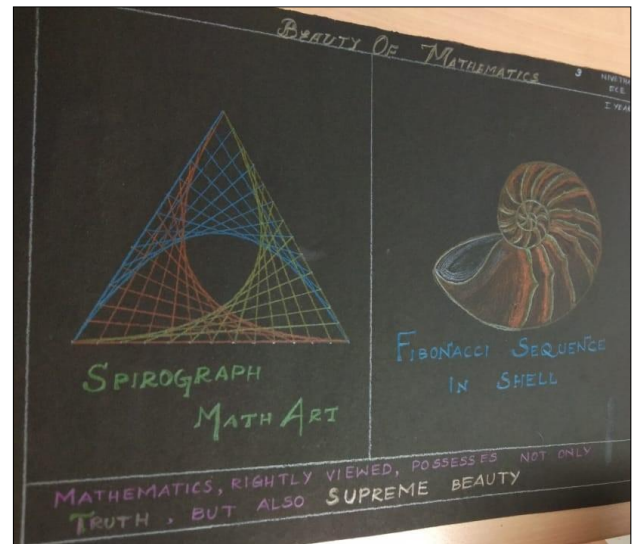 BEAUTY OF MATHEMATICS
3
I YEAR
SPIROGRAPH
MATH ART
FIBONACCI SEQUENCE
IN SHELL
MATHEMATICS, RIGHTLY VIEWED, POSSESSES NOT ONLY
TRUTH, BUT ALSO SUPREME BEAUTY